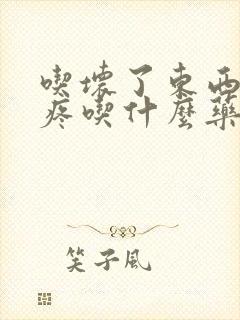 喫壞了東西
疼喫什麼藥
笑子風